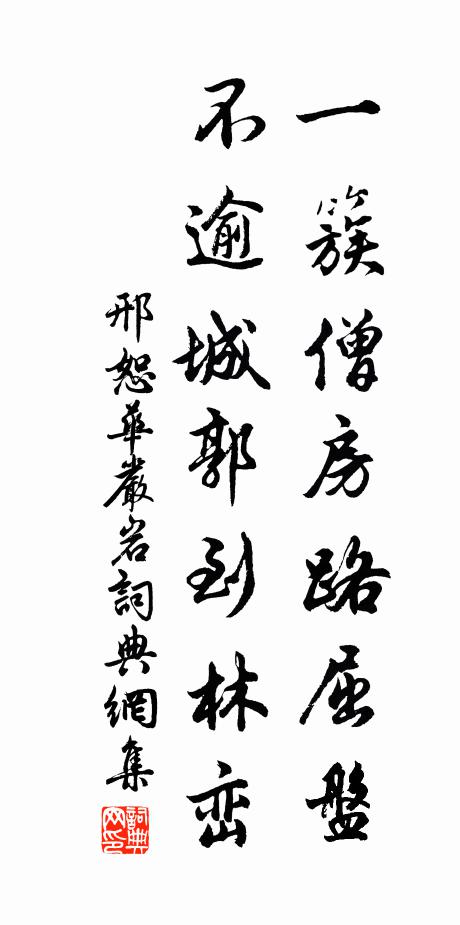 一簇僧房路屈盤
不逾城郭到林巒
邢恕華嚴岩詞典網集
詞典網印